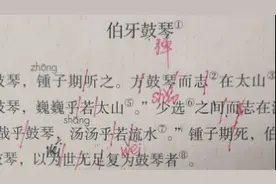 伯牙鼓琴①
弹
zhōng
鼓琴，锺子期听之。方鼓琴而志②在太山③
shào
琴，巍巍乎若太山⑤。”少选⑥之间而志在流
shāng
哉乎鼓琴，汤汤乎若流水⑦。”锺子期死，伯
wèi wèi
鼓琴，以为世无足复为鼓琴者⑧。